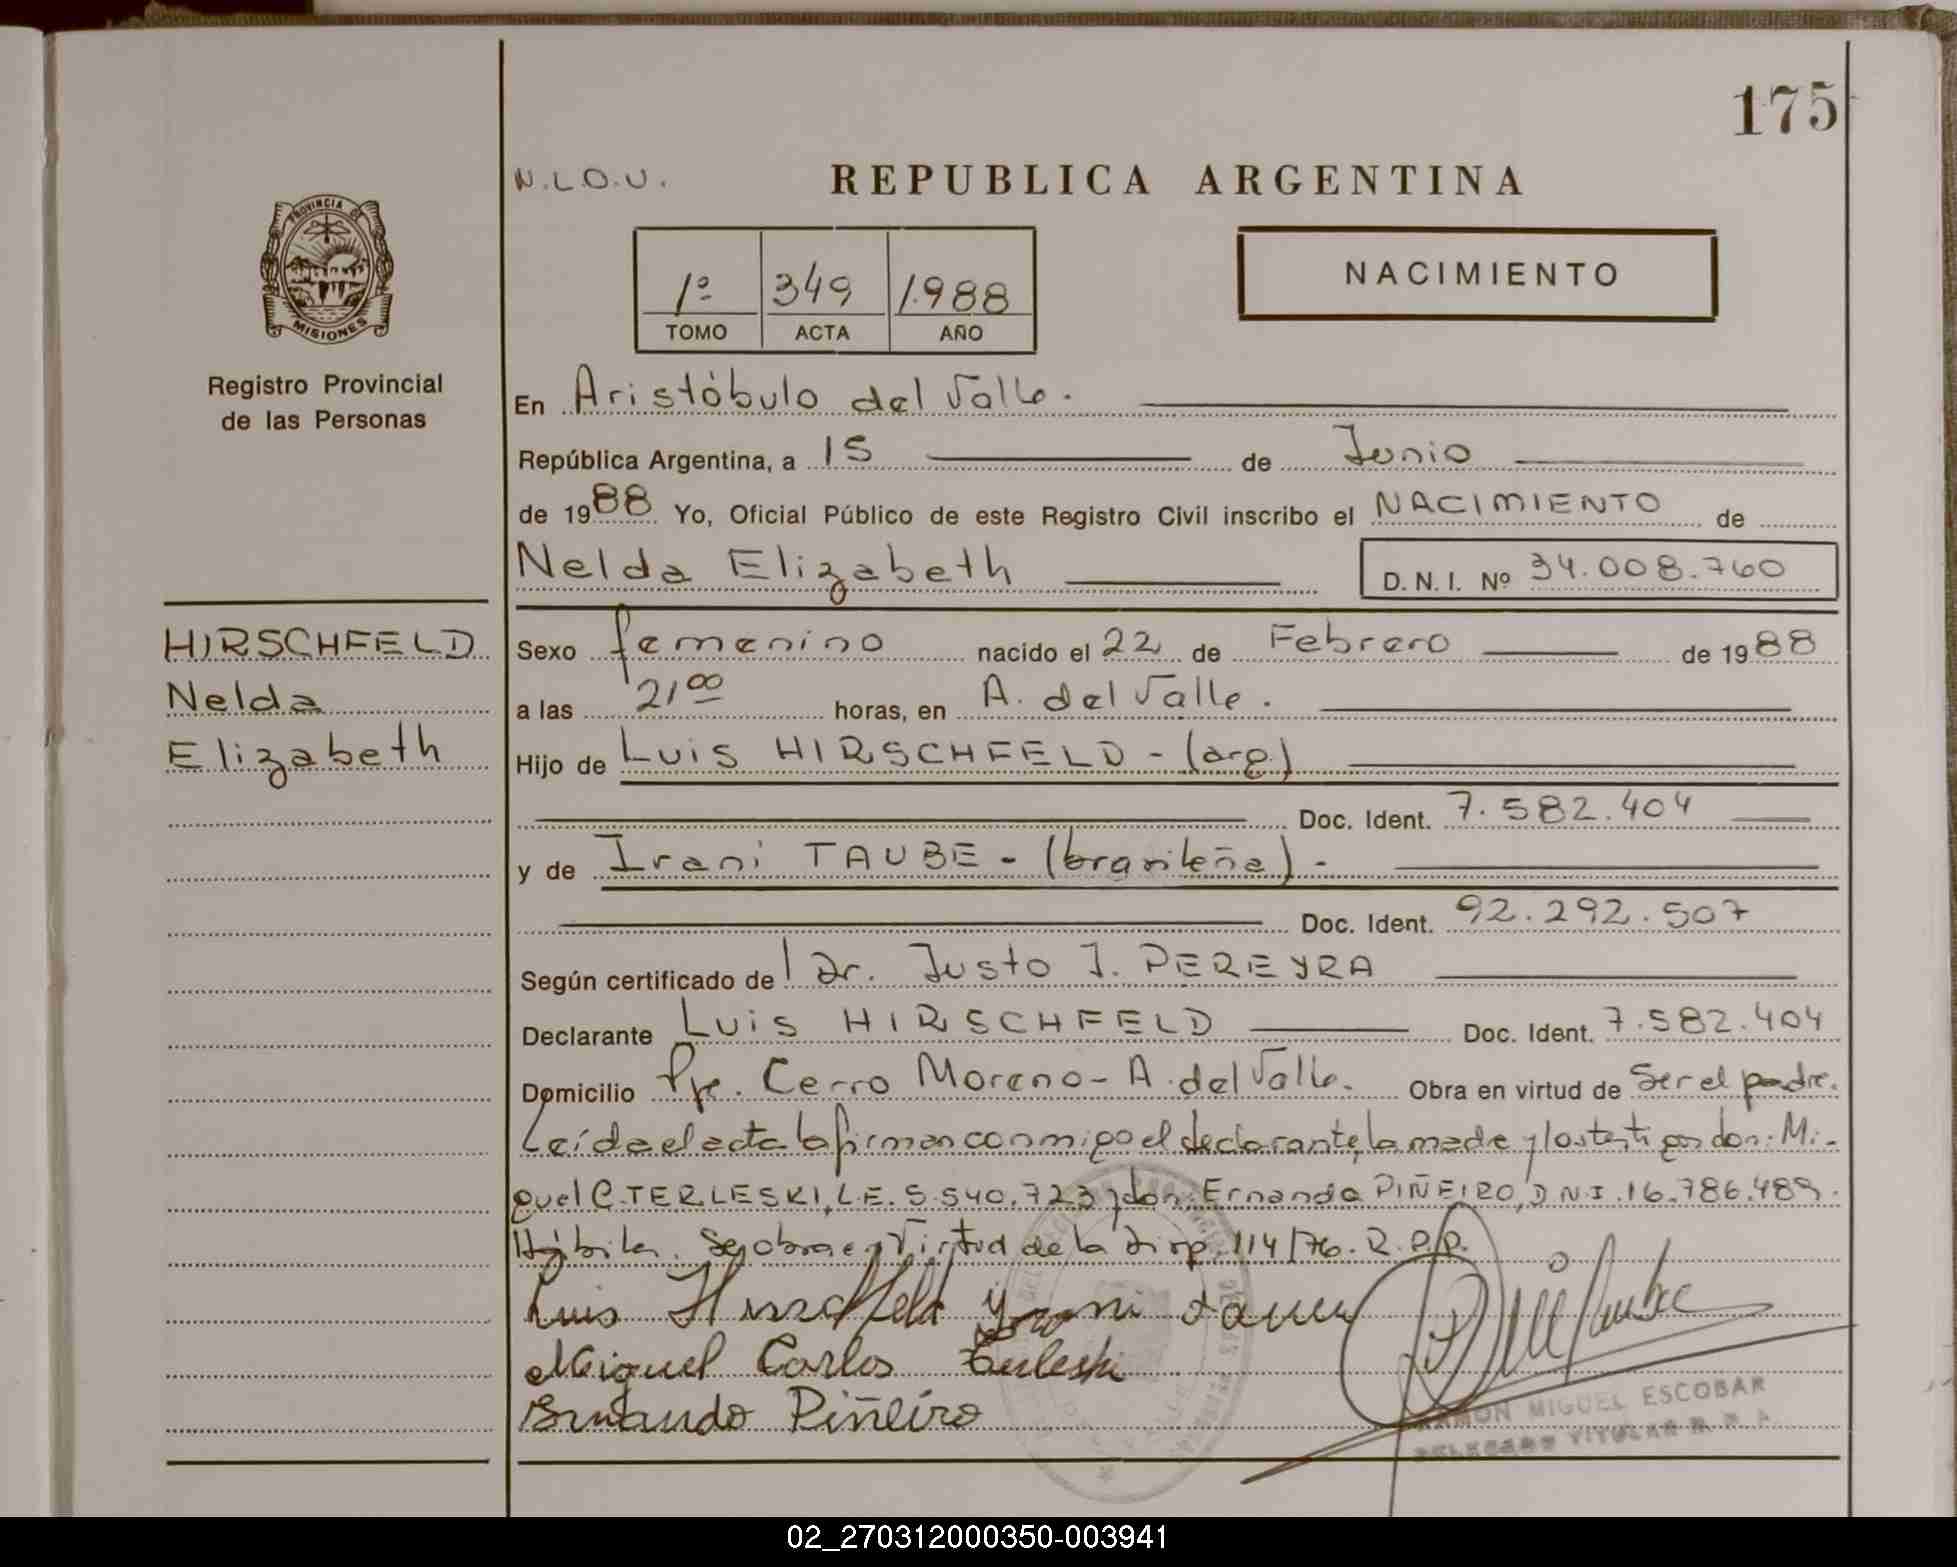 175
N.L.O.U.
REPUBLICA ARGENTINA
PROVINCIA DE
MISIONES
1º 349 1.988
TOMO ACTA AÑO
NACIMIENTO
Registro Provincial
de las Personas
En Aristóbulo del Valle.
República Argentina, a 15 de Junio
de 1988 Yo, Oficial Público de este Registro Civil inscribo el NACIMIENTO de
Nelda Elizabeth D.N.I. Nº 34.008.760
HIRSCHFELD
Nelda
Elizabeth
Sexo femenino nacido el 22 de Febrero de 1988
a las 21 00 horas, en A. del Valle.
Hijo de Luis HIRSCHFELD - (arg.)
Doc. Ident. 7.582.404
y de Irani TAUBE - (brasileña) -
Doc. Ident. 92.292.507
Según certificado de l Dr. Justo J. PEREYRA
Declarante Luis HIRSCHFELD Doc. Ident. 7.582.404
Domicilio Pje. Cerro Moreno - A. del Valle. Obra en virtud de Ser el padre.
Leída el acta la firman conmigo el declarante, la madre y los testigos don: Mi-
guel C. TERLESKI, L.E. 5.540.723 y don: Ernando PIÑEIRO, D.N.I. 16.786.489.
Hábiles. Se obra en Virtud de la Disp. 114/76. R.P.P.
Luis Hirschfeld
Miguel Carlos Terleski
Ernando Piñeiro
RAMON MIGUEL ESCOBAR
DELEGADO TITULAR R. P.
02_270312000350-003941